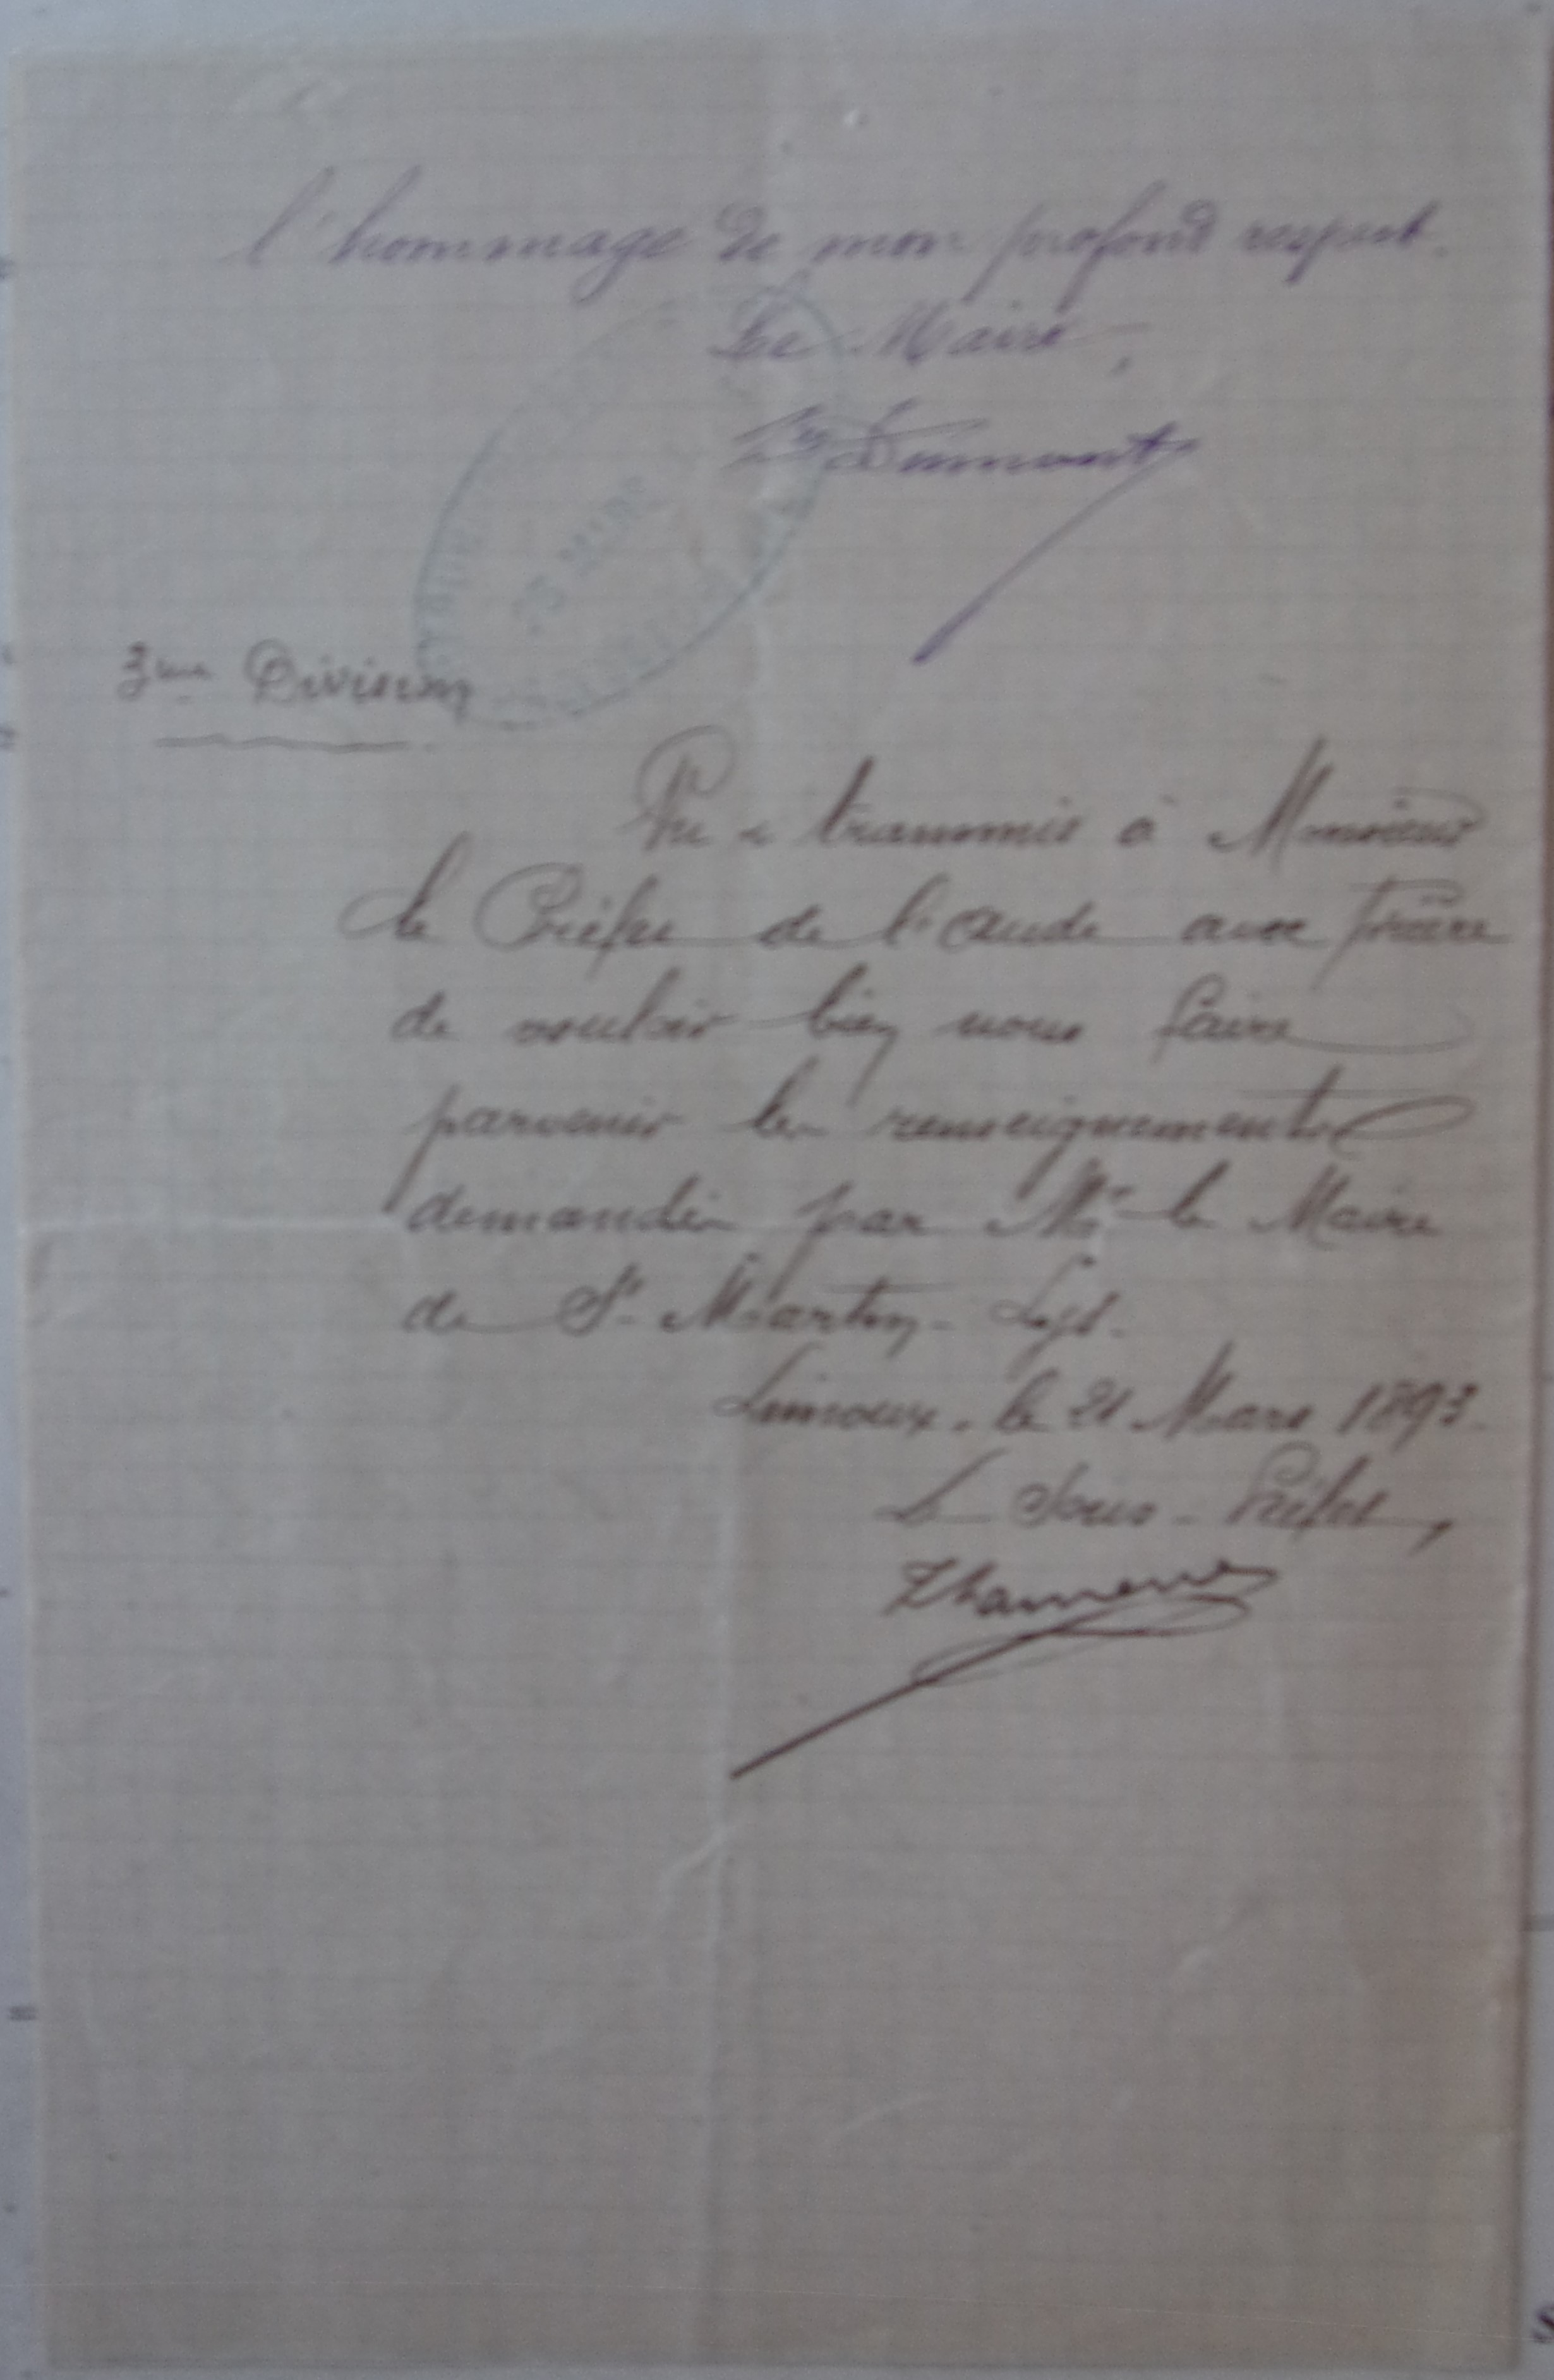 l'hommage de mon profond respect.
Le Maire,
Dumont
3me Division
Vu & transmis à Monsieur
le Préfet de l'Aude avec prière
de vouloir bien nous faire
parvenir les renseignements
demandés par Mr le Maire
de St Martin-Lys.
Limoux, le 21 Mars 1893
Le Sous-Préfet,